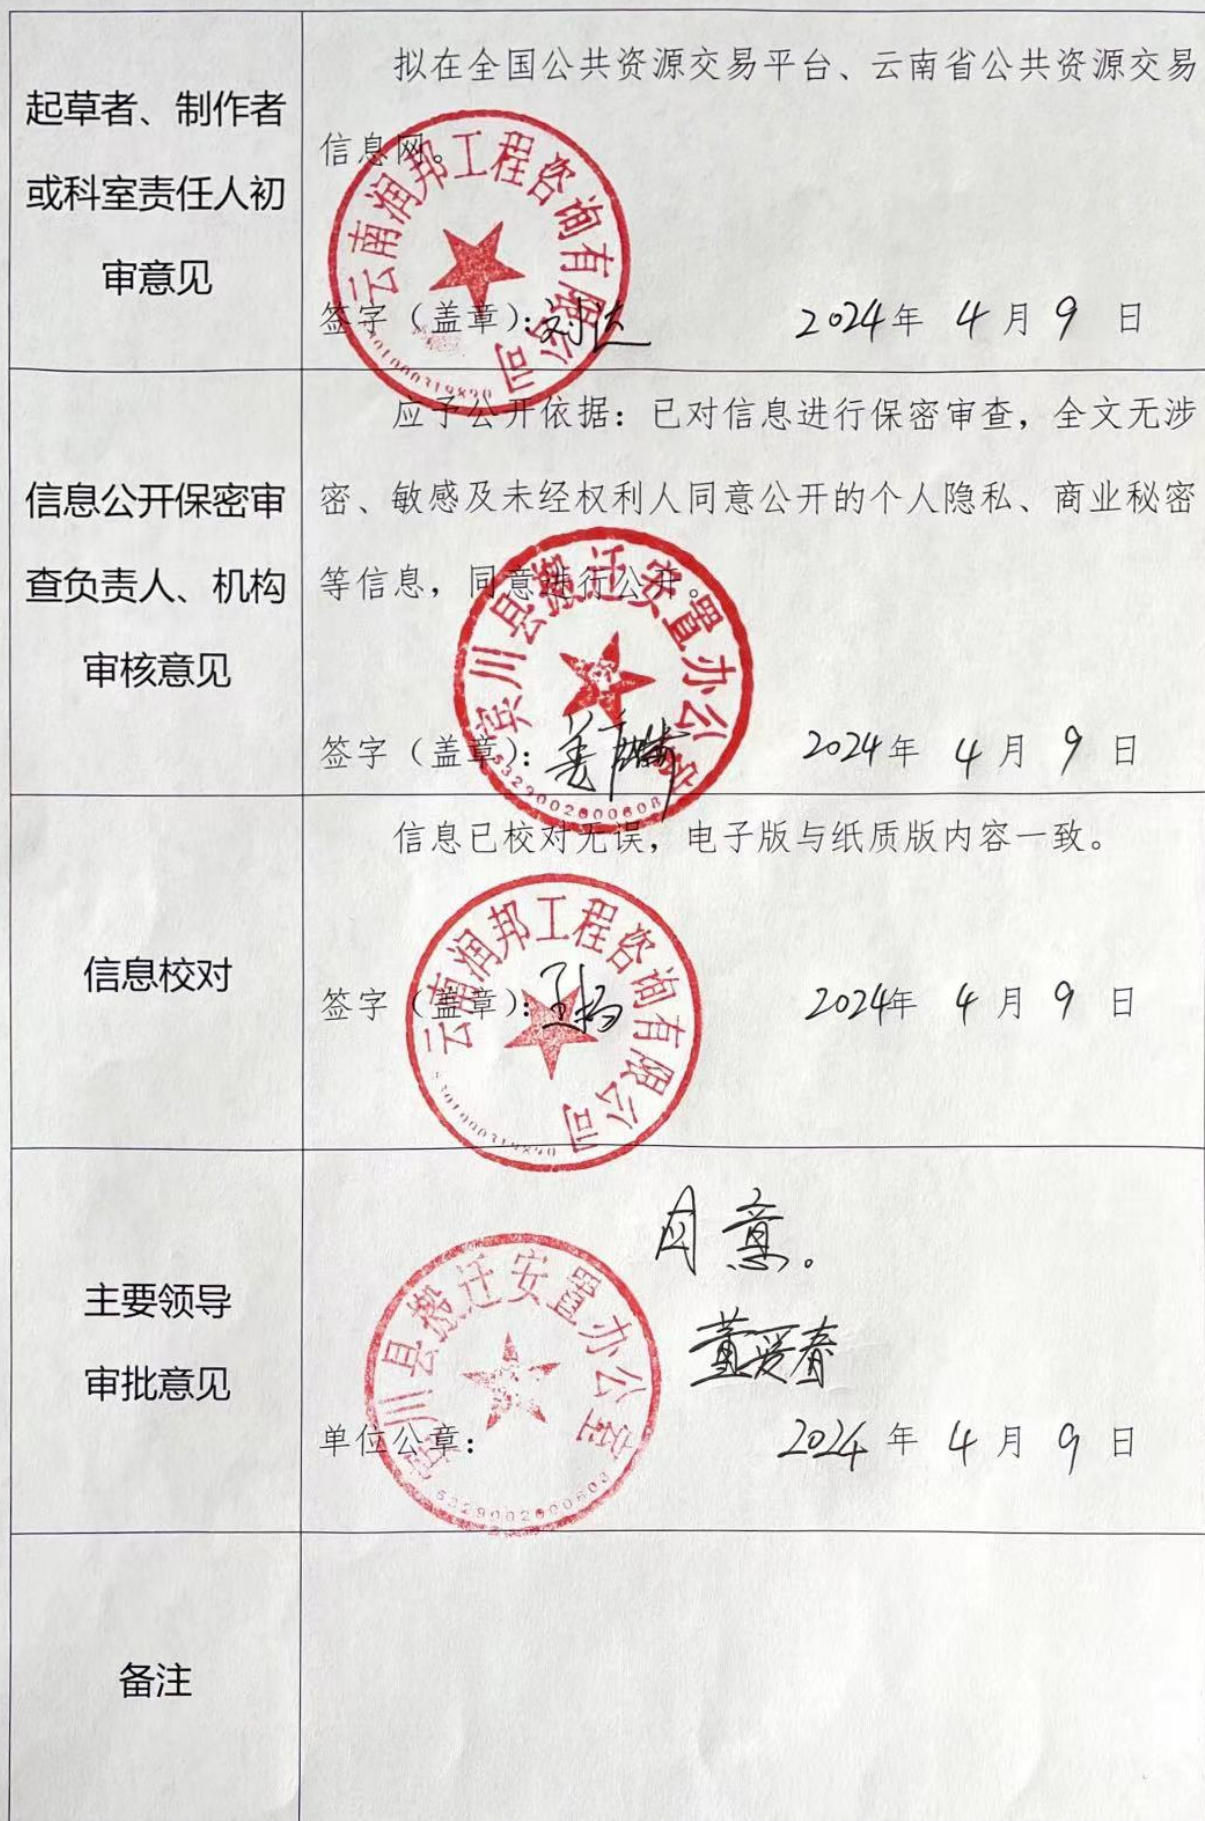 起草者、制作者
或科室责任人初
审意见
拟在全国公共资源交易平台、云南省公共资源交易
信息网。
云南润邦工程咨询有限公司
签字（盖章）：
2024年 4月 9日
信息公开保密审
查负责人、机构
审核意见
应予公开依据：已对信息进行保密审查，全文无涉
密、敏感及未经权利人同意公开的个人隐私、商业秘密
等信息，同意进行公开。
宾川县搬迁安置办公室
签字（盖章）：
2024年 4月 9日
信息校对
信息已校对无误，电子版与纸质版内容一致。
云南润邦工程咨询有限公司
签字（盖章）：
2024年 4月 9日
主要领导
审批意见
同意。
董爱春
宾川县搬迁安置办公室
单位公章：
2024年 4月 9日
备注